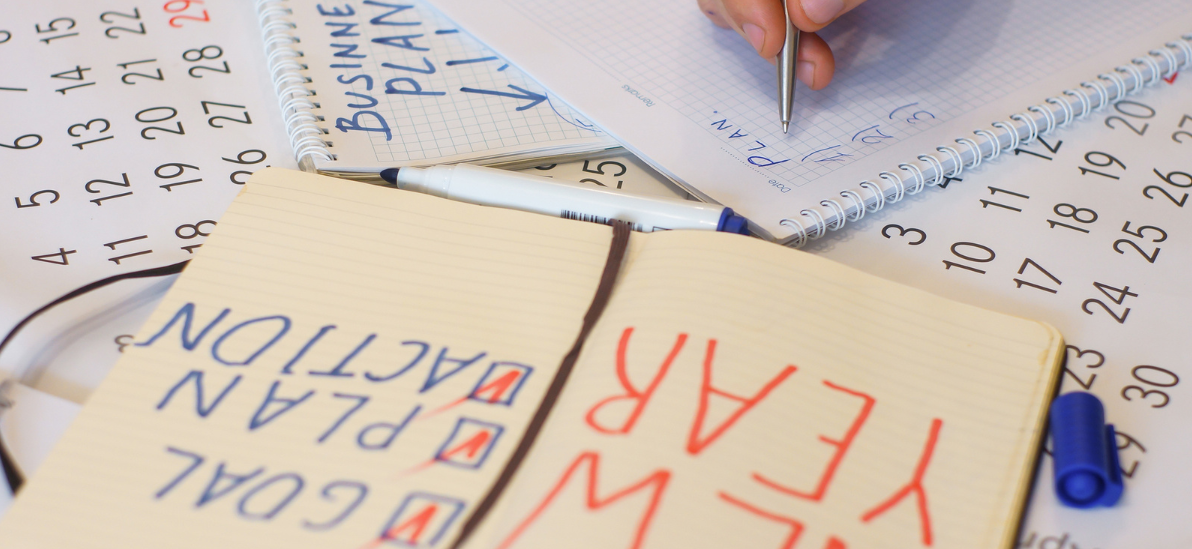 BUSINNE
PLAN
PLAN.
1)
2)
3)
Date
Remarks
GOAL
PLAN
ACTION
NEW
YEAR
4 5 6 7
11 12 13 14 15
18 19 20 21 22
25 26 27 28 29
3
10 11 12
17 18 19 20
23 24 25 26 27
29 30